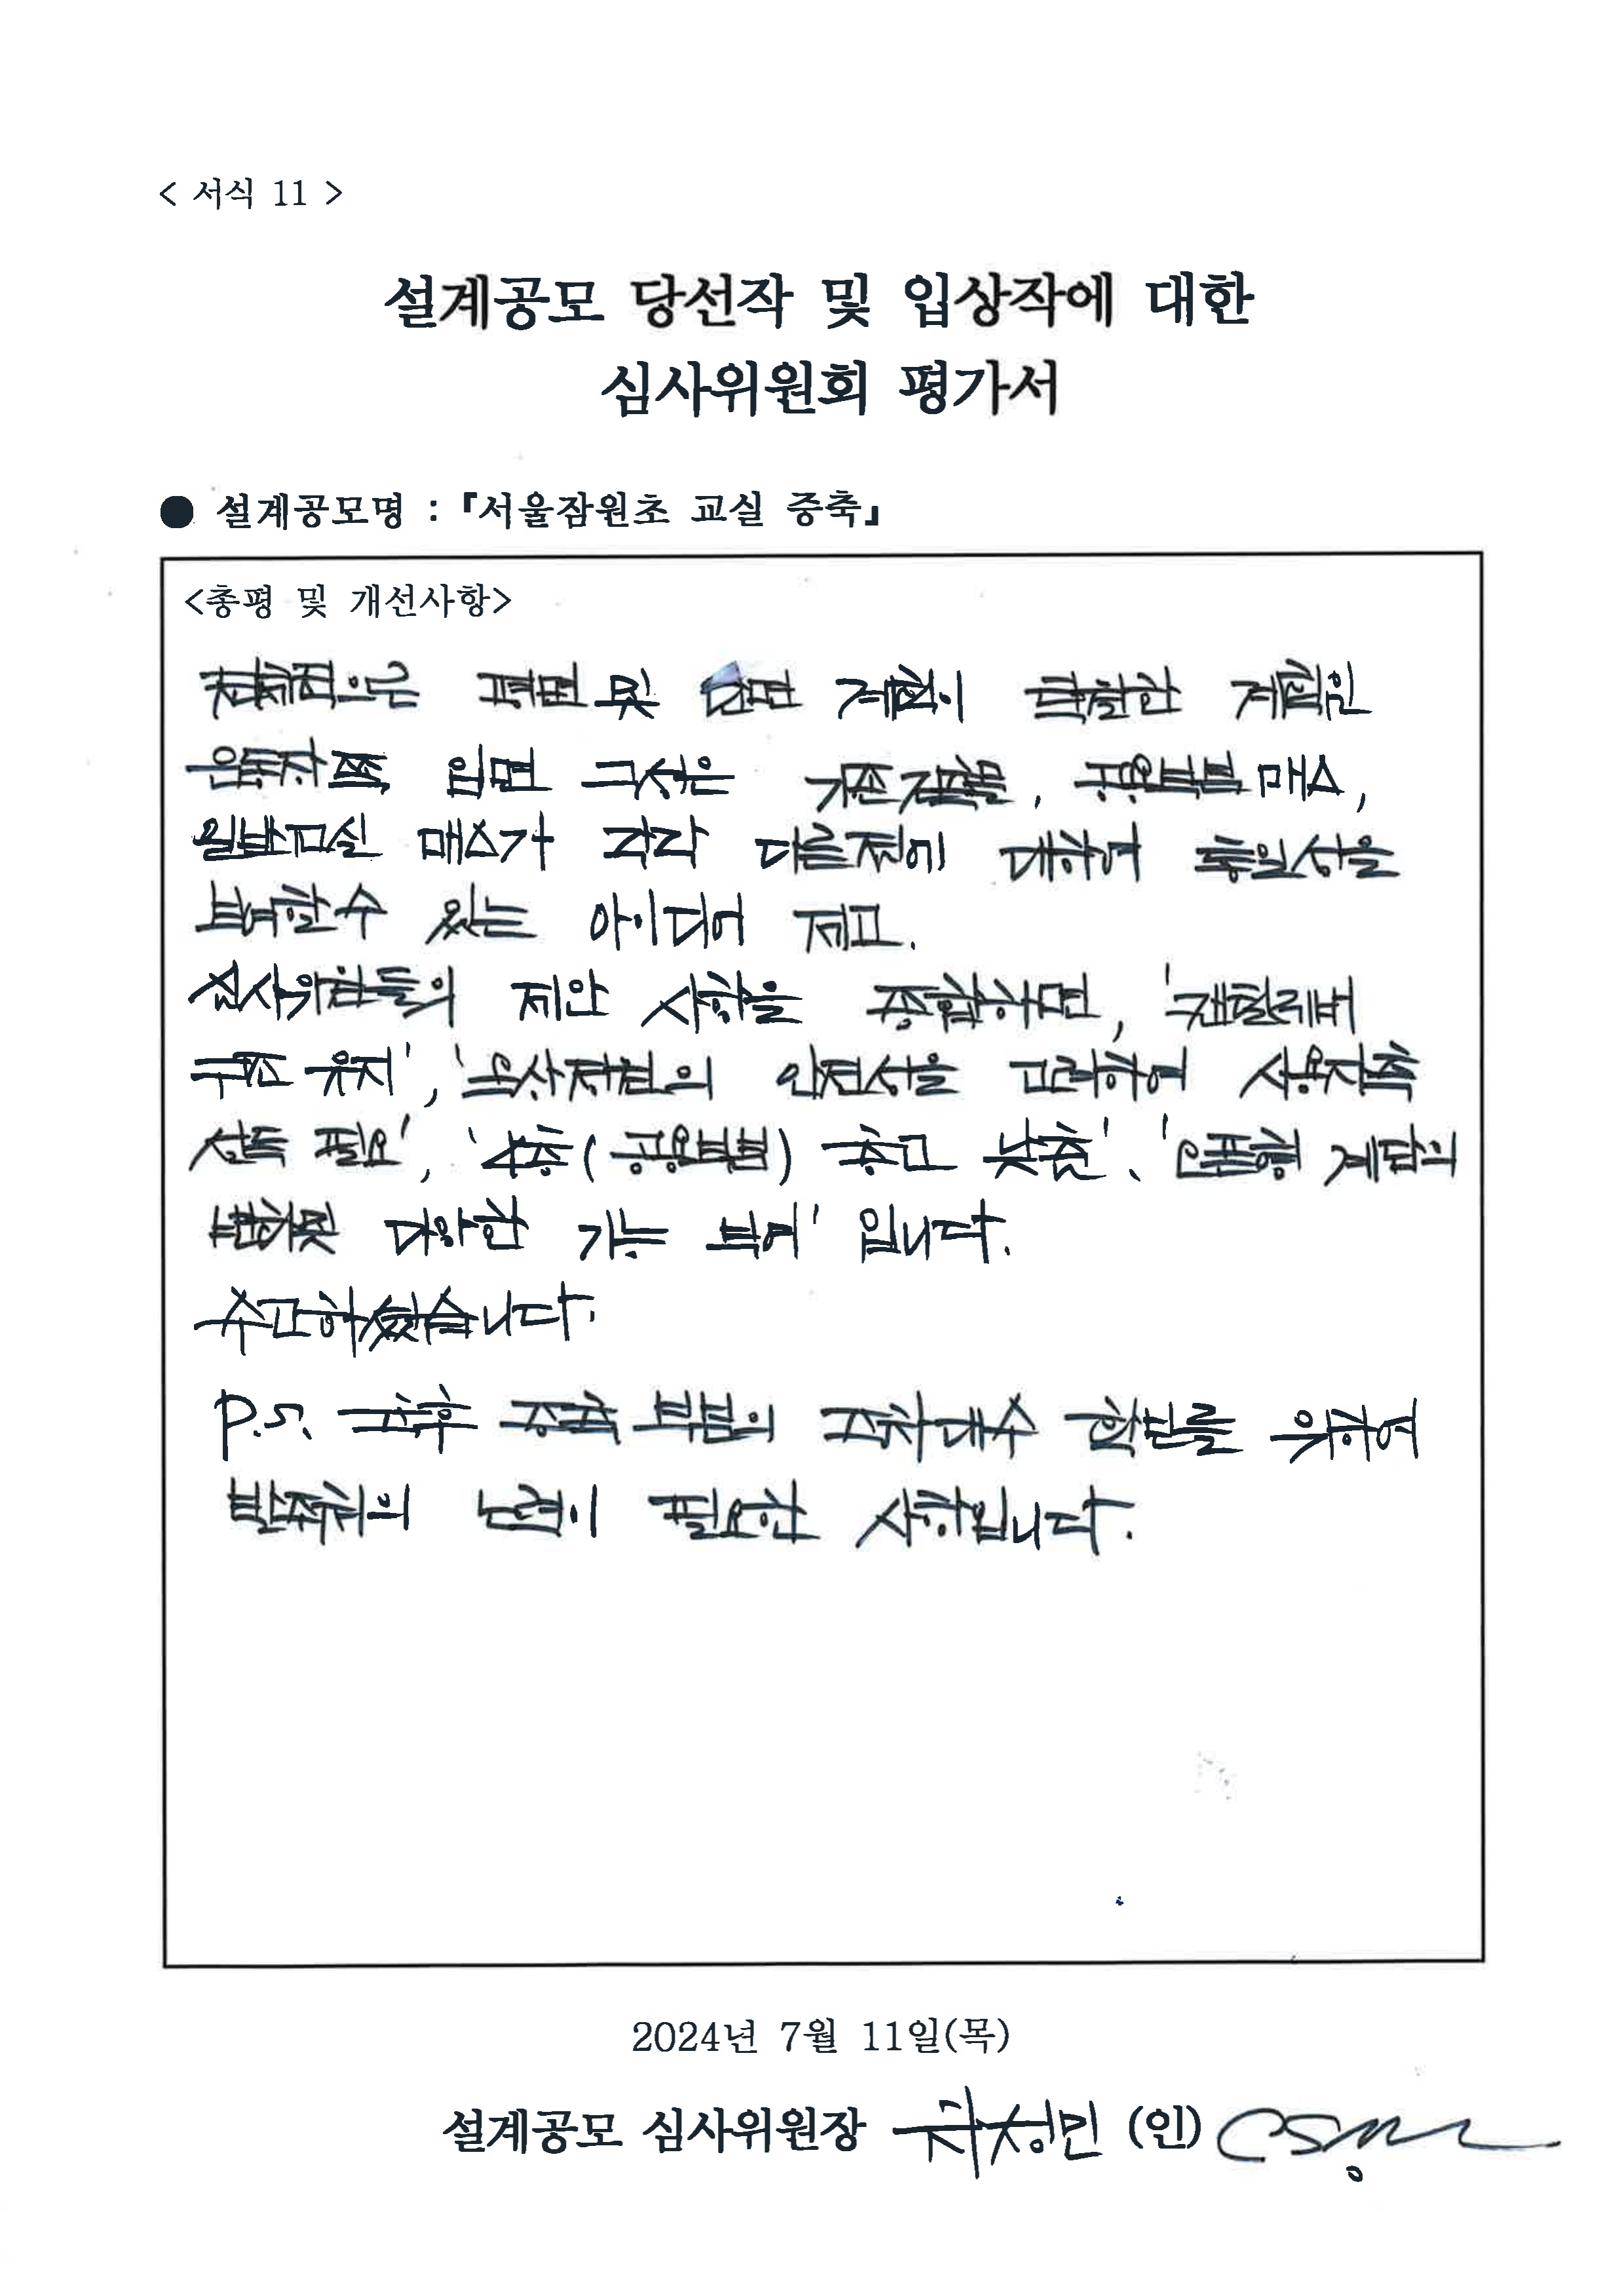 < 서식 11 >
설계공모 당선작 및 입상작에 대한
심사위원회 평가서
● 설계공모명 : 『서울잠원초 교실 증축』
<총평 및 개선사항>
전체적으로 평면 및 입면 계획이 탁월한 계획임
운동장쪽 입면 구성은 기존건물, 공용부분 매스,
일반교실 매스가 각각 다른점에 대하여 통일성을
부여할 수 있는 아이디어 제고.
심사위원들의 제안 사항을 종합하면, '캔틸레버
구조 유지', '옥상정원의 안전성을 고려하여 사용자측
설득 필요', '4층(공용부분) 층고 낮춤', '오픈형 계단의
변화 및 다양한 기능 부여' 입니다.
수고하셨습니다.
P.S. 추후 증축 부분의 주차대수 확보를 위하여
발주처의 노력이 필요한 사항입니다.
2024년 7월 11일(목)
설계공모 심사위원장 차성민 (인)